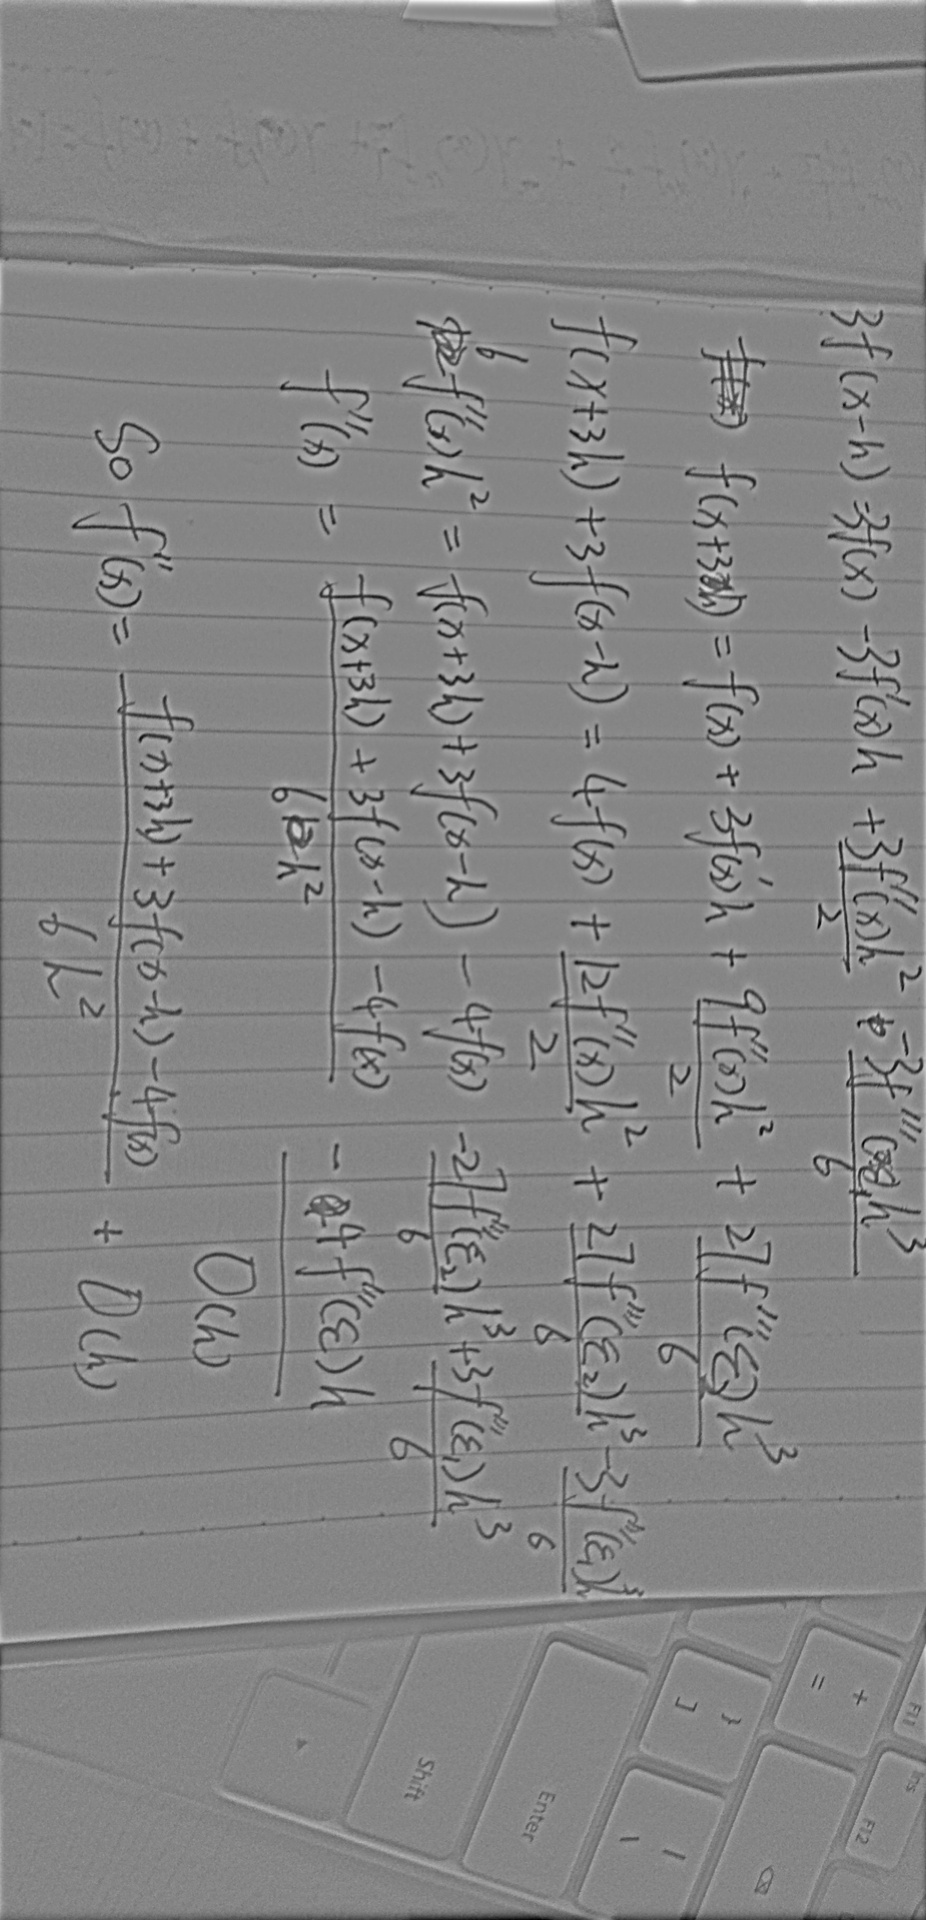 3f(x-h) = 3f(x) - 3f'(x)h + 3f''(x)h²/2 - 3f'''(ε₁)h³/6
f(x+3h) = f(x) + 3f'(x)h + 9f''(x)h²/2 + 27f'''(ε₂)h³/6
f(x+3h) + 3f(x-h) = 4f(x) + 12f''(x)h²/2 + 27f'''(ε₂)h³/6 - 3f'''(ε₁)h³/6
6f''(x)h² = f(x+3h) + 3f(x-h) - 4f(x) - 27f'''(ε₂)h³/6 + 3f'''(ε₁)h³/6
f''(x) = f(x+3h) + 3f(x-h) - 4f(x)/6h² - 4f'''(ε)h
O(h)
So f''(x) = f(x+3h) + 3f(x-h) - 4f(x)/6h² + O(h)
F11
+ =
} ]
Enter
Shift
Ins F12
| \